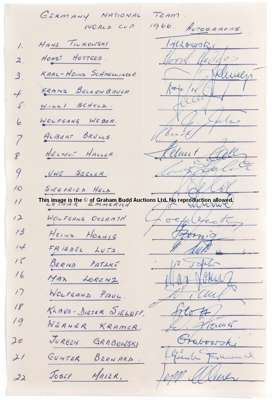 GERMANY NATIONAL TEAM
WORLD CUP 1966 AUTOGRAPHS
1. HANS TILKOWSKI Tilkowski
2. HORST HOTTGES
3. KARL-HEINZ SCHNELLINGER
4 FRANZ BECKENBAUER
5 WILLI SCHULZ
6 WOLFGANG WEBER
7 ALBERT BRULLS
8 HELMUT HALLER Helmut Haller
9 UWE SEELER
10 SIEGFRIED HELD
This image is the © of Graham Budd Auctions Ltd. No reproduction allowed.
11 LOTHAR EMMERICH
12 WOLFGANG OVERATH
13 HEINZ HORNIG Hornig
14 FRIEDEL LUTZ
15 BERND PATZKE
16 MAX LORENZ Max Lorenz
17 WOLFGANG PAUL
18 KLAUS-DIETER SIELOFF
19 WERNER KRAMER
20 JURGEN GRABOWSKI Grabowski
21 GUNTER BERNARD
22 JOSEF MAIER. Sepp Maier